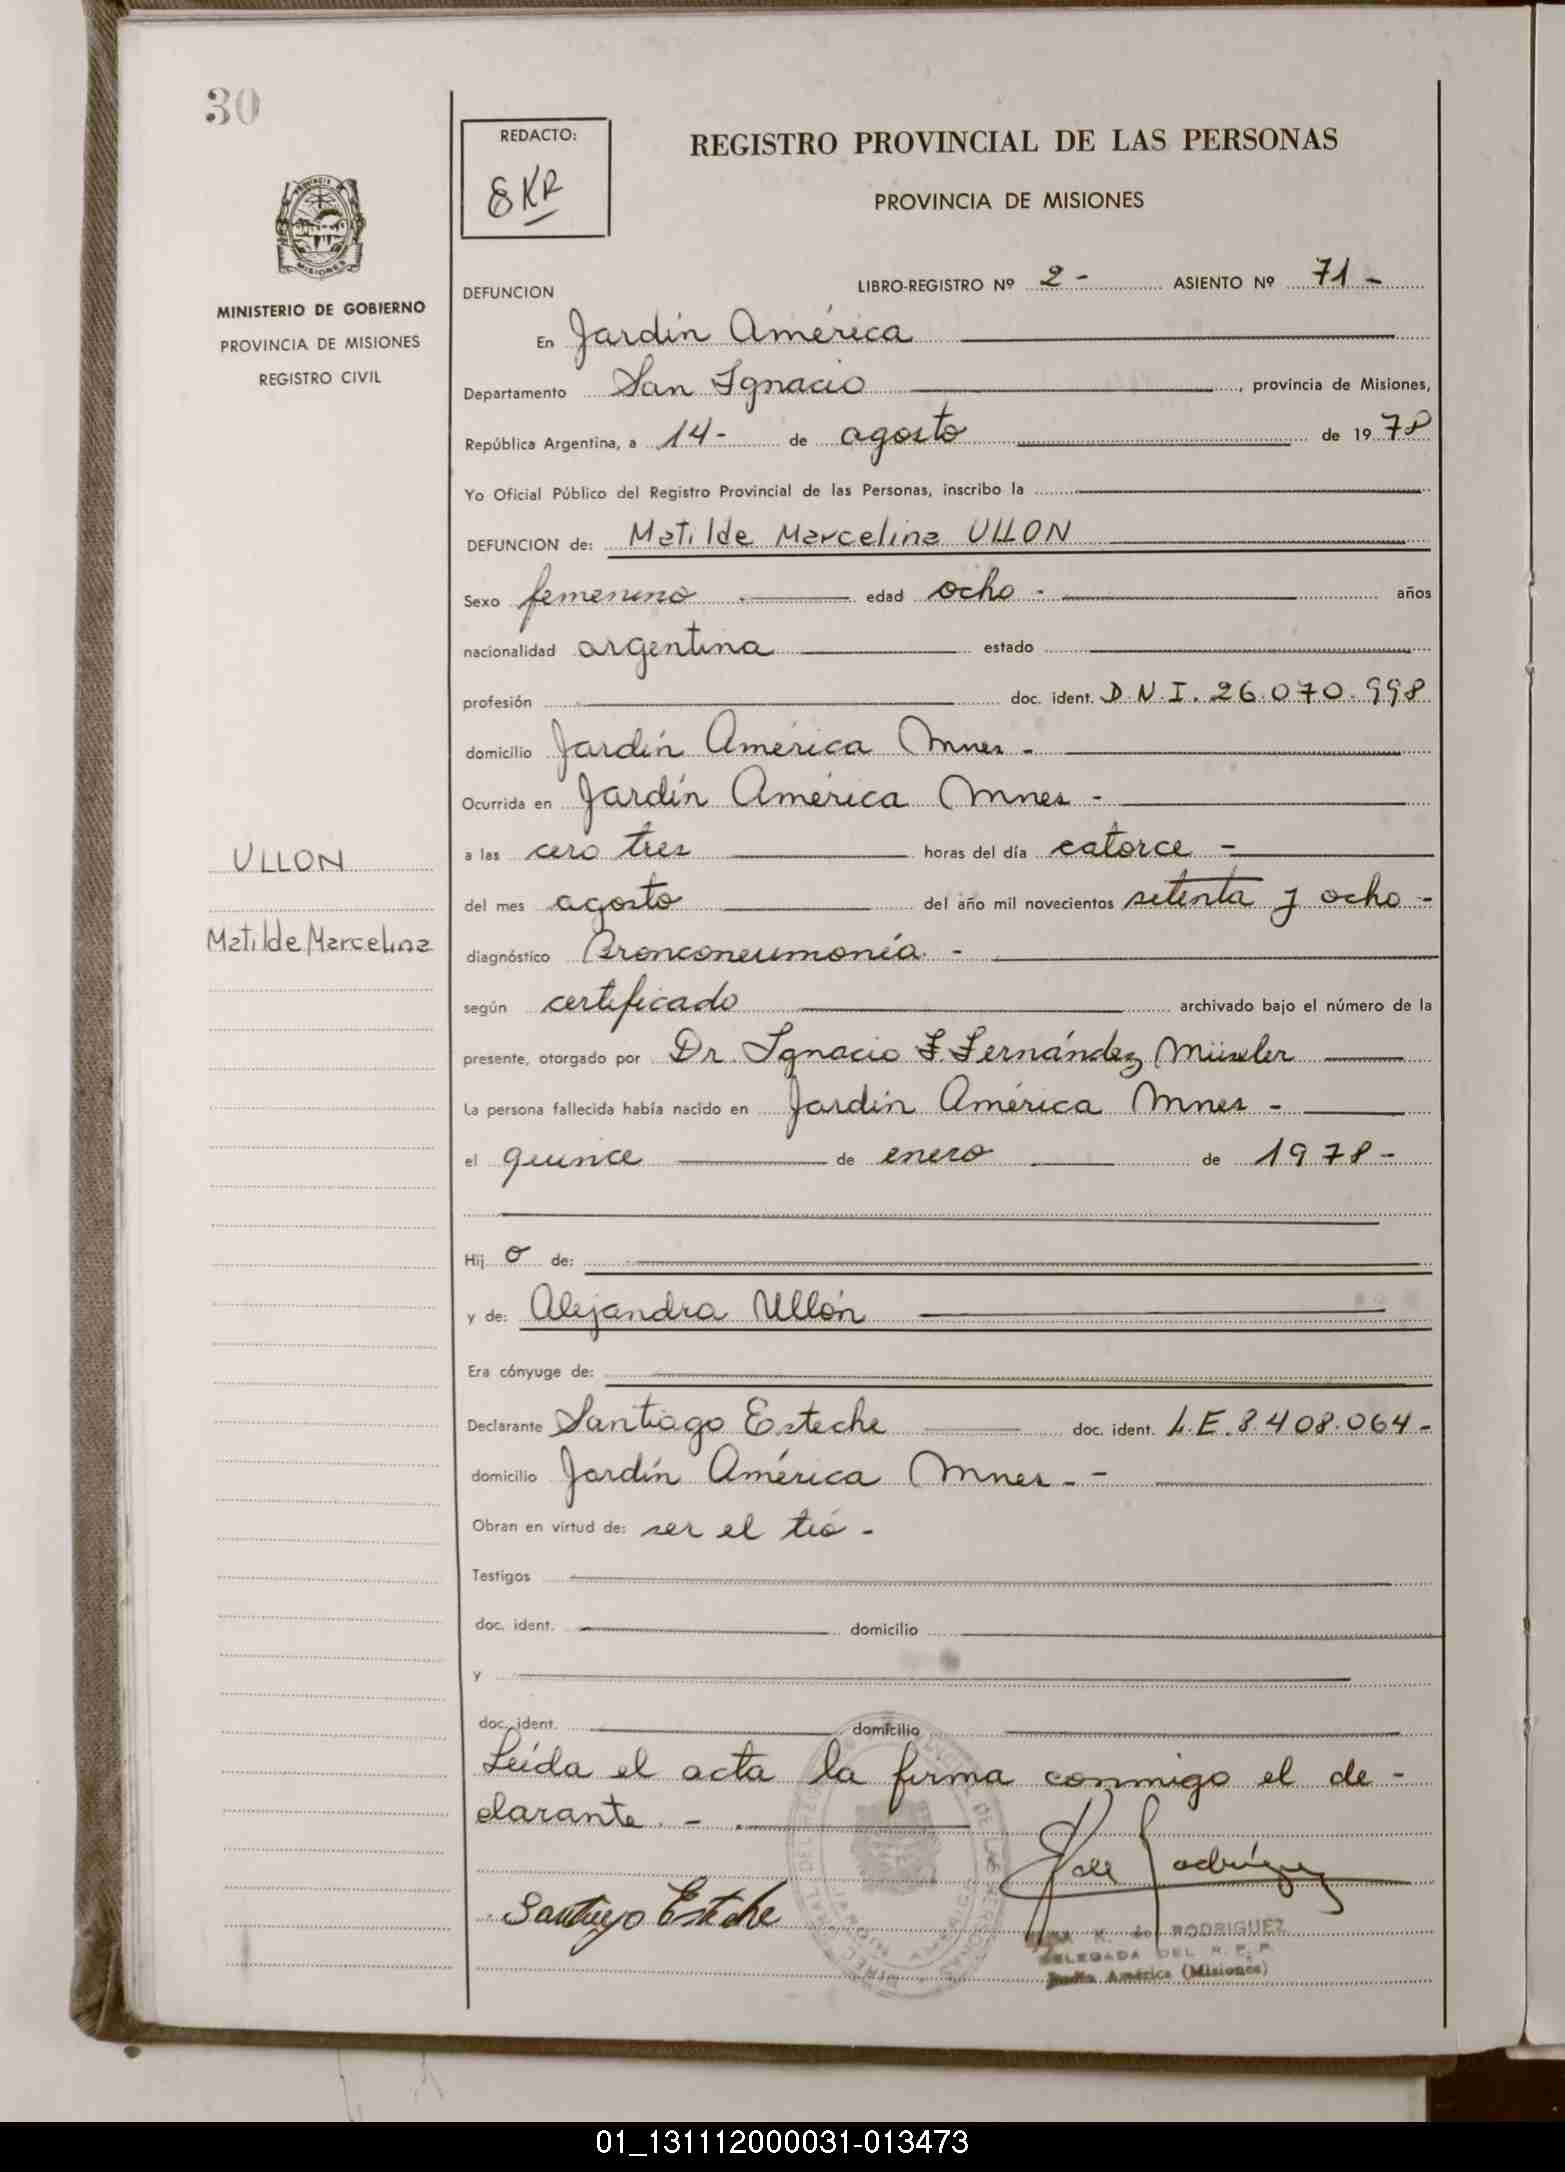 30
REDACTO:
REGISTRO PROVINCIAL DE LAS PERSONAS
PROVINCIA DE MISIONES
MISIONES
MINISTERIO DE GOBIERNO
PROVINCIA DE MISIONES
REGISTRO CIVIL
DEFUNCION LIBRO-REGISTRO Nº 2 - ASIENTO Nº 71 -
En Jardín América
Departamento San Ignacio, provincia de Misiones,
República Argentina, a 14 - de agosto de 1978
Yo Oficial Público del Registro Provincial de las Personas, inscribo la
DEFUNCION de: Matilde Marcelina ULLON
Sexo femenino edad ocho - años
nacionalidad argentina estado
profesión doc. ident. D.N.I. 26.070.998
domicilio Jardín América Mnes -
Ocurrida en Jardín América Mnes -
ULLON
a las cero tres horas del día catorce -
del mes agosto del año mil novecientos setenta y ocho -
Matilde Marcelina
diagnóstico Bronconeumonía -
según certificado archivado bajo el número de la
presente, otorgado por Dr. Ignacio F. Fernández
La persona fallecida había nacido en Jardín América Mnes -
el quince de enero de 1978 -
Hij o de:
y de: Alejandra Ullón
Era cónyuge de:
Declarante Santiago Esteche doc. ident. L.E. 8.408.064 -
domicilio Jardín América Mnes - -
Obran en virtud de: ser el tío -
Testigos
doc. ident. domicilio
y
doc. ident. domicilio
Leída el acta la firma conmigo el de -
clarante. -
Santiago Esteche
de RODRIGUEZ
DELEGADA DEL R. P. P.
Jardín América (Misiones)
01_131112000031-013473